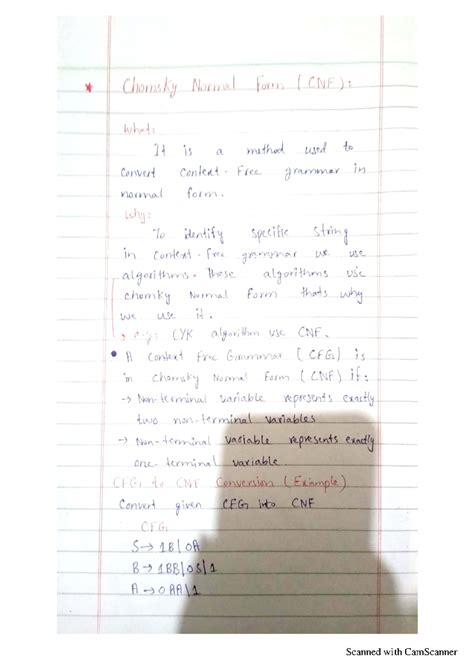 * Chomsky Normal Form (CNF):
What:
It is a method used to
convert Context-Free grammar in
normal form.
Why:
To identify specific string
in context-free grammar we use
algorithms. These algorithms use
chomky Normal Form thats why
we use it.
e.g: CYK algorithm use CNF.
• A Context Free Grammar (CFG) is
in Chomsky Normal Form (CNF) if:
→ Non-terminal variable represents exactly
two non-terminal variables
→ Non-terminal variable represents exactly
one-terminal variable.
CFG to CNF Conversion (Example)
Convert given CFG into CNF
CFG
S→1B|0A
B→1BB|0S|1
A→0AA|1
Scanned with CamScanner